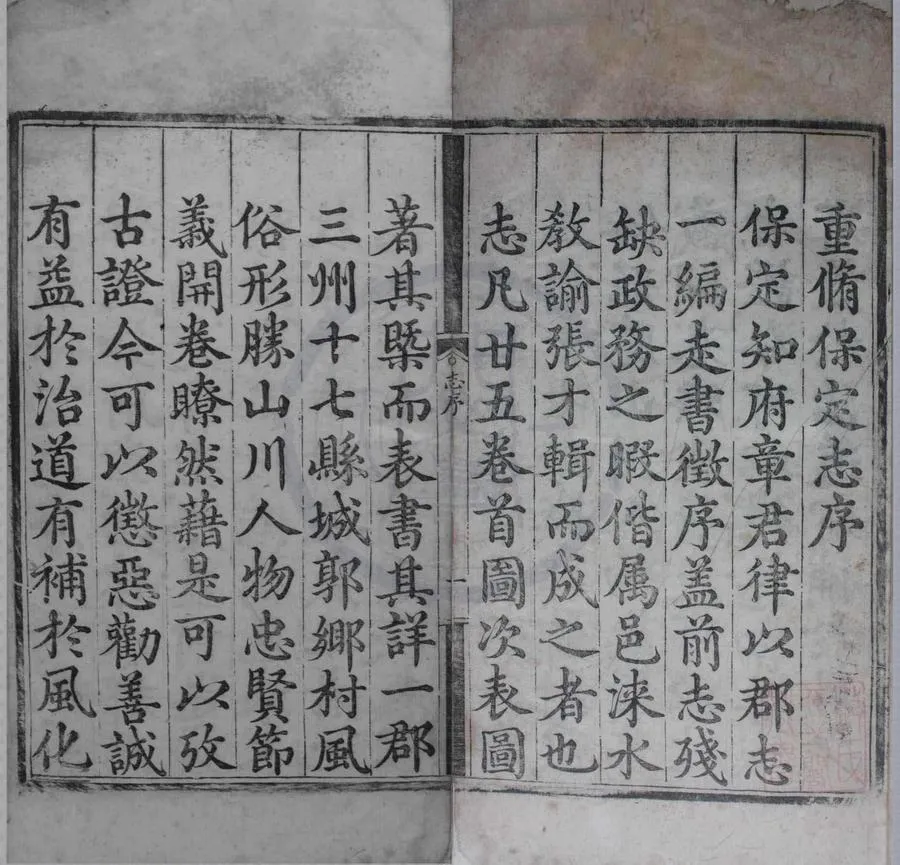 重脩保定志序
保定知府章君律以郡志
一編走書徵序盖前志殘
缺政務之暇偕属邑涞水
教諭張才輯而成之者也
志凡廿五卷首圖次表圖
志序
一
著其槩而表書其詳一郡
三州十七縣城郭鄉村風
俗形勝山川人物忠賢節
義開卷瞭然藉是可以攷
古證今可以懲惡勸善誠
有益於治道有補於風化